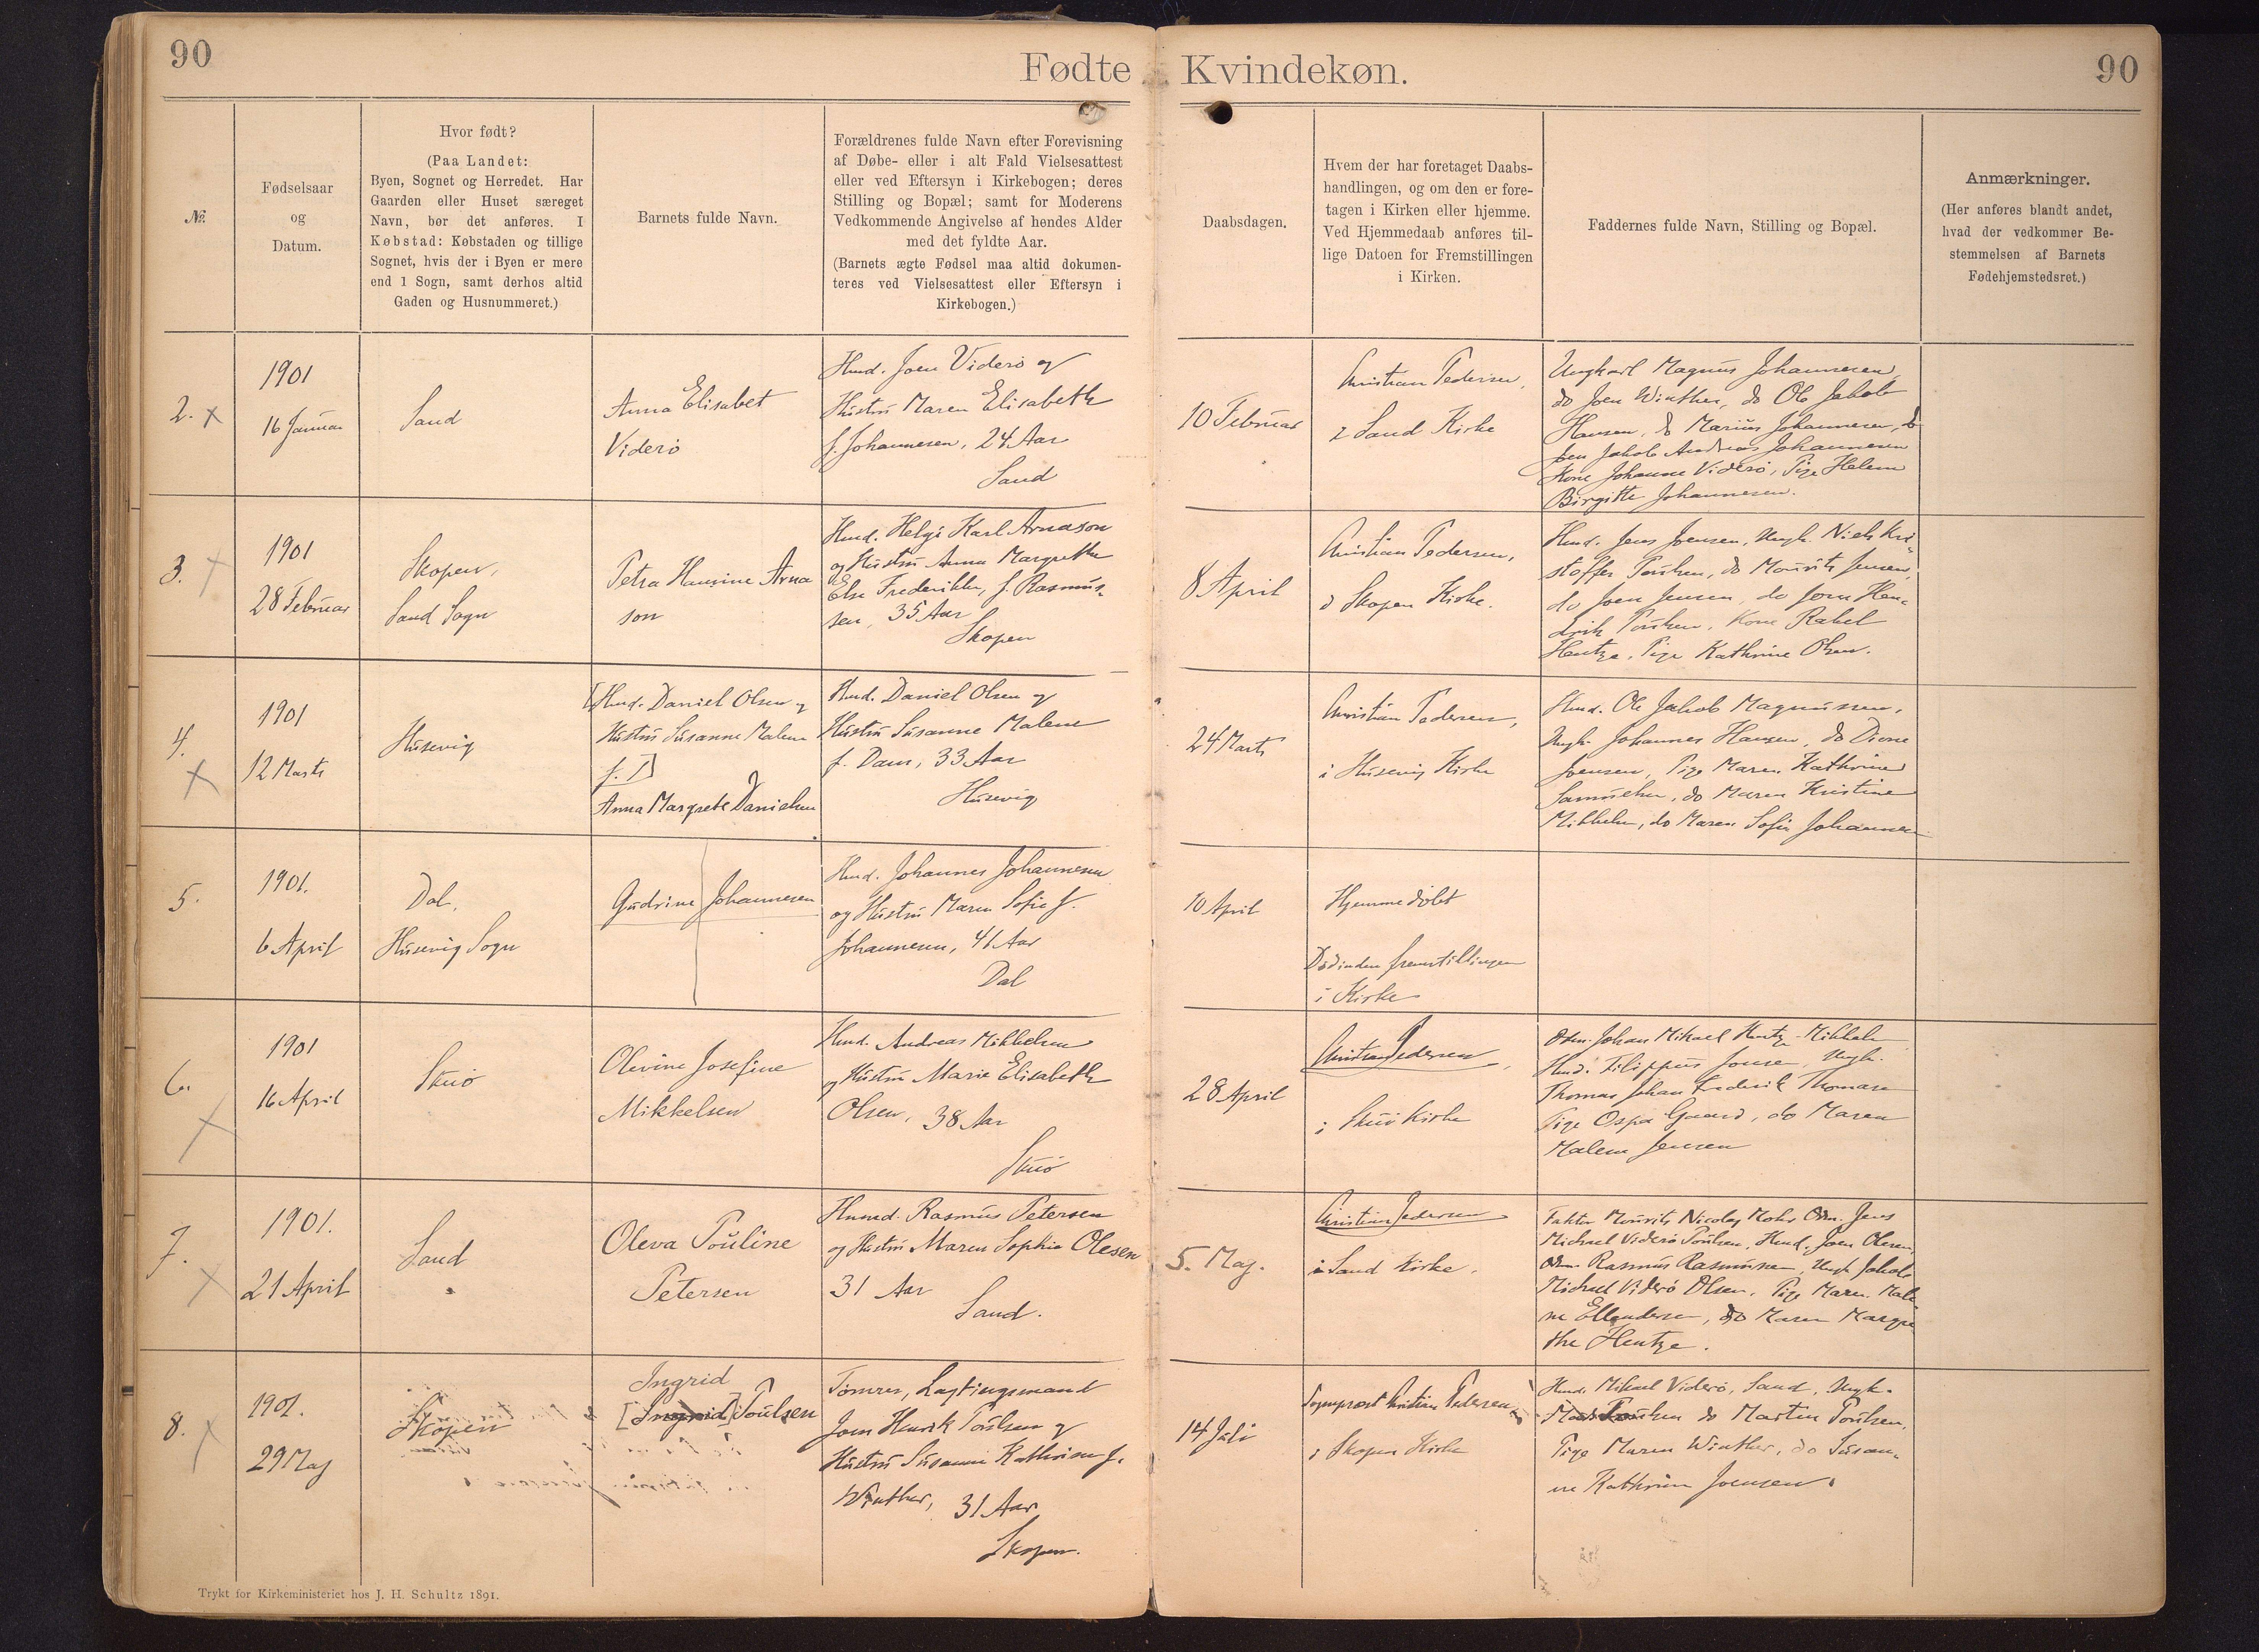 90
Fødte
Kvindekøn.
90
№.
Fødselsaar
og
Datum.
Hvor født?
(Paa Landet:
Byen, Sognet og Herredet. Har
Gaarden eller Huset særeget
Navn, bør det anføres. I
Købstad: Købstaden og tillige
Sognet, hvis der i Byen er mere
end 1 Sogn, samt derhos altid
Gaden og Husnummeret.)
Barnets fulde Navn.
Forældrenes fulde Navn efter Forevisning
af Døbe- eller i alt Fald Vielsesattest
eller ved Eftersyn i Kirkebogen; deres
Stilling og Bopæl; samt for Moderens
Vedkommende Angivelse af hendes Alder
med det fyldte Aar.
(Barnets ægte Fødsel maa altid dokumen-
teres ved Vielsesattest eller Eftersyn i
Kirkebogen.)
Daabsdagen.
Hvem der har foretaget Daabs-
handlingen, og om den er fore-
tagen i Kirken eller hjemme.
Ved Hjemmedaab anføres til-
lige Datoen for Fremstillingen
i Kirken.
Faddernes fulde Navn, Stilling og Bopæl.
Anmærkninger.
(Her anføres blandt andet,
hvad der vedkommer Be-
stemmelsen af Barnets
Fødehjemstedsret.)
2. x
1901
16 Januar
Sand
Anna Elisabet
Viderö
Hmd. Joen Viderö og
Hustru Maren Elisabeth
f. Johannesen, 24 Aar
Sand
10 Februar
Christian Pedersen,
i Sand Kirke
Ungkarl Magnus Johannesen,
do Joen Winther, do Ole Jakob
Hansen, do Marius Johannesen, do
Jakob Andreas Johannesen
Kone Johanne Viderö, Pige Helene
Birgitte Johannesen.
3. x
1901
28 Februar
Skopen,
Sand Sogn
Petra Hansine Arna
son
Hmd. Helgi Karl Arnason
og Hustru Anna Margrethe
Else Frederikke, f. Rasmus-
sen, 35 Aar
Skopen
8 April
Christian Pedersen,
i Skopen Kirke.
Hmd. Jens Joensen, Ungk. Niels Kri-
stoffer Poulsen, do Mourits Jensen,
do Joen Jensen, do Joen Hen-
drik Poulsen, Kone Rakel
Hentze, Pige Kathrine Olsen.
4. x
1901
12 Marts
Husevig
[Hmd. Daniel Olsen og
Hustru Susanne Malene
f. D]
Anna Margrete Danielsen
Hmd. Daniel Olsen og
Hustru Susanne Malene
f. Dam, 33 Aar
Husevig
24 Marts
Christian Pedersen,
i Husevig Kirke
Hmd. Ole Jakob Magnussen,
Ungk. Johannes Hansen, do Dione
Joensen, Pige Maren Kathrine
Samuelsen, do Maren Kristine
Mikkelsen, do Maren Sofie Johannesen
5.
1901.
6 April
Dal,
Husevig Sogn
Gudrine Johannesen
Hmd. Johannes Johannesen
og Hustru Maren Sofie f.
Johannesen, 41 Aar
Dal
10 April
Hjemmedöbt
Död inden fremstillingen
i Kirke
6. x
1901
16 April
Skuö
Olevine Josefine
Mikkelsen
Hmd. Andreas Mikkelsen
og Hustru Marie Elisabeth
Olsen, 38 Aar
Skuö
28 April
Christian Pedersen,
i Skuö Kirke
Odm. Johan Mikael Hentze Mikkelsen
Hmd. Filippus Jensen, Ungk.
Thomas Johan Frederik Thomasen
Pige Ospa Gaard, do Maren
Malene Jensen
7. x
1901.
21 April
Sand
Oleva Pouline
Petersen
Husmd. Rasmus Petersen
og Hustru Maren Sophie Olesen
31 Aar
Sand.
5. Maj.
Christian Pedersen
i Sand Kirke.
Faktor Mourits Nicolaj Mohr Odm. Jens
Michael Viderö Poulsen, Hmd. Joen Olesen,
Odm. Rasmus Rasmussen, Ungk. Jakob
Michael Viderö Olsen, Pige Maren Male-
ne Ellendersen, do Maren Margre
the Hentze.
8. x
1901.
29 Maj
Skopen
Ingrid
[Ingrid] Poulsen
Tömrer, Lagtingsmand
Joen Henrik Poulsen og
Hustru Susanne Kathrine f.
Winther, 31 Aar
Skopen.
14 Juli
Sogneprest Kristian Pedersen
i Skopen Kirke
Hmd. Mikael Viderö, Sand, Ungk.
Poulsen do Morten Poulsen,
Pige Maren Winther, do Susan-
ne Kathrine Joensen.
Trykt for Kirkeministeriet hos J. H. Schultz 1891.